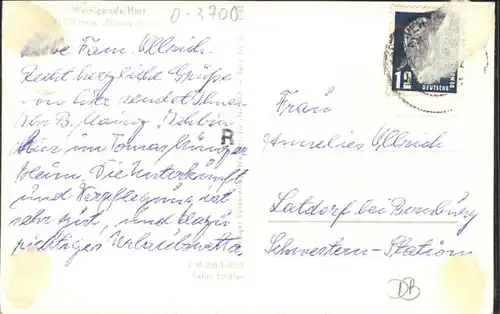 Wernigerode/Harz
D-3700
Liebe Fam. Ullrich.
Recht herzliche Grüße
von hier sendet Ihnen
Ihr B. Ich bin
hier im Tomas Münzer
Heim. Die Unterkunft
und Verpflegung ist
sehr gut, und dazu
richtiges Urlaubswetter.
R
DEUTSCHE
Frau
Annelies Ullrich
Latdorf bei Bernburg
Schwestern-Station
Foto: Schäfer
DB